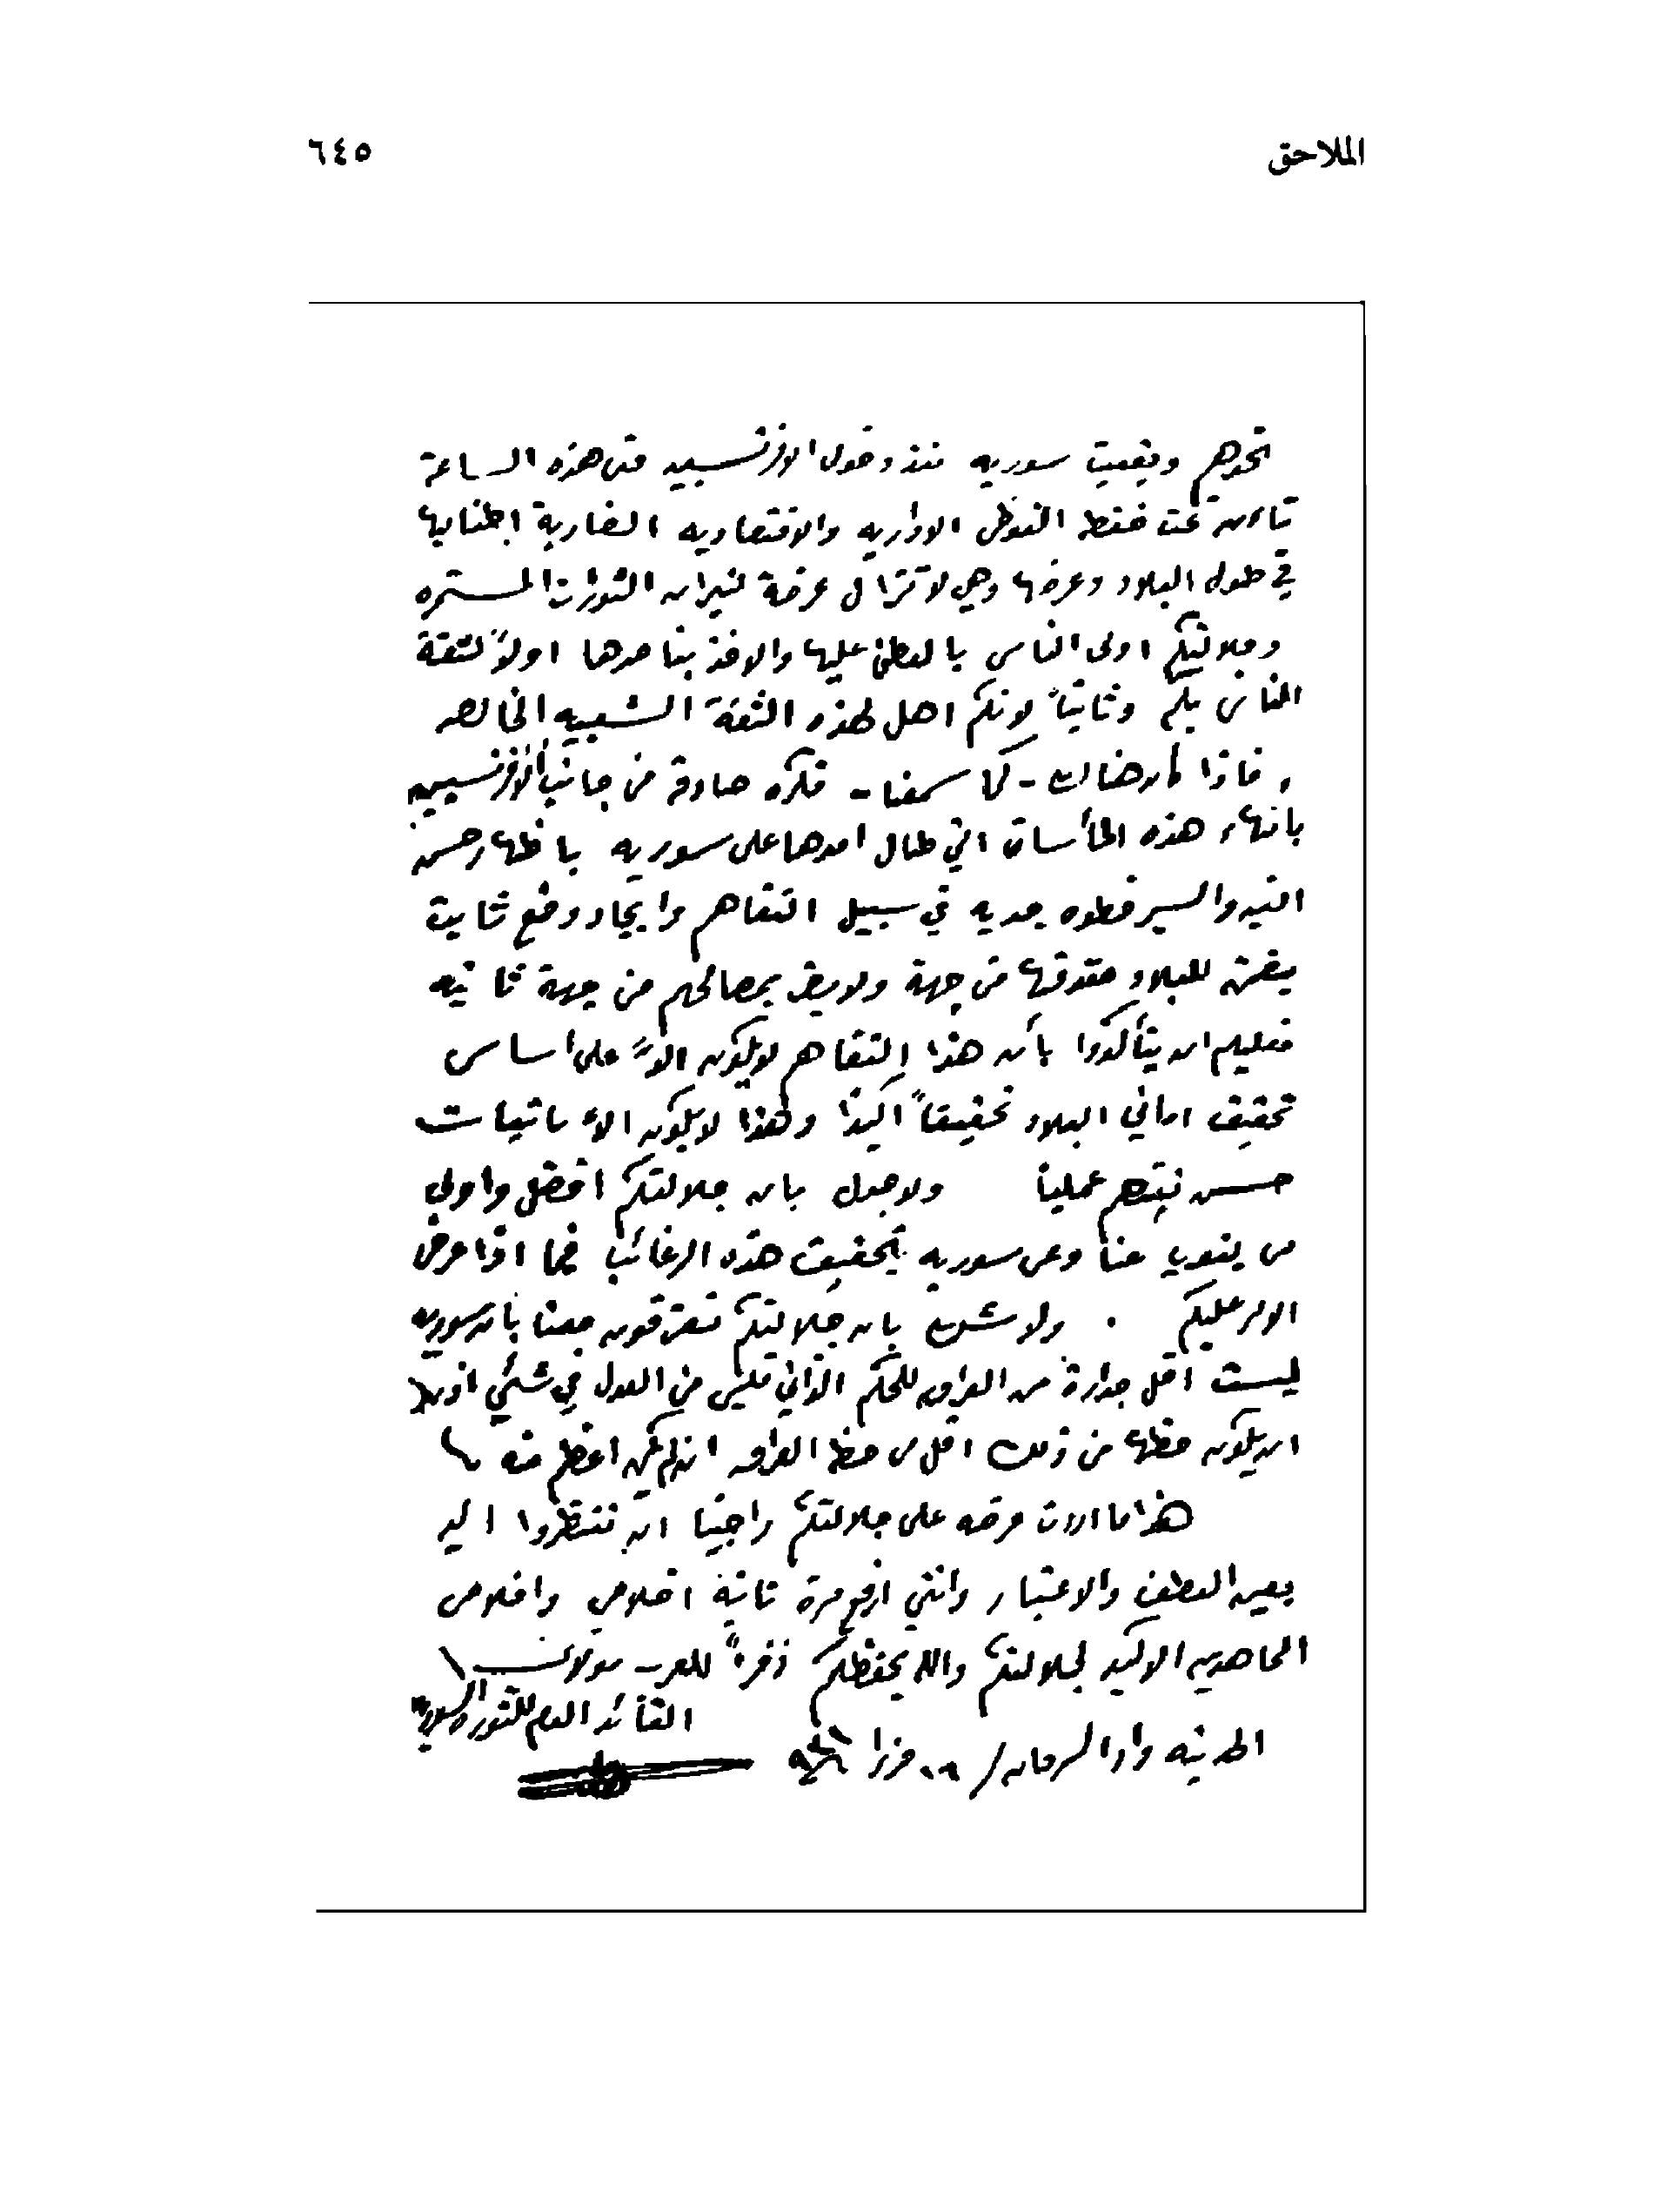 الملاحق
٦٤٥
نحوهم وبقيت سوريه منذ دخول الافرنسيين حتى هذه الساعة
تأن تحت ضغط الفوضى الاداريه والاقتصاديه الضاربة اطنابها
في طول البلاد وعرضها وهي لا تزال عرضة لنيران الثورات المستمره
وجلالتكم اولى الناس بالعطف عليها والاخذ بناصرها اولاً لثقة
الناس بكم وثانياً لانكم اهل لهذه الثقة الشعبيه الخالصه
، فاذا كان هنالك - كما سمعنا - فكره صادقة من جانب الافرنسيين
بانهاء هذه المأساة التي طال امدها على سوريه باظهار حسن
النيه والسير خطوه جديه في سبيل التفاهم وايجاد وضع ثابت
يضمن للبلاد حقوقها من جهة ولا يضر بمصالحهم من جهة ثانيه
فعليهم ان يتأكدوا بأن هذا التفاهم لا يكون الاّ على اساس
تحقيق اماني البلاد تحقيقاً اكيدا وهذا لا يكون الا باثبات
حسن نيتهم عملياً ولا جدل بان جلالتكم افضل واولى
من ينوب عنا وعن سوريه بتحقيق هذه الرغائب فيما اذا عرض
الامر عليكم . ولا شك بان جلالتكم تعترفون معنا بان سوريه
ليست اقل جدارة من العراق للحكم الذاتي فليس من العدل في شئ
ان يكون حظها من ذلك اقل من حظ العراق ان لم يكن اعظم منه
هذا ما اردت عرضه على جلالتكم راجيا ان تنظروا اليه
بعين العطف والاعتبار وانني ارفع مرة ثانية اخلاصي واخلاص
المجاهدين الاكيد لجلالتكم والله يحفظكم ذخراً للعرب مولانا
القائد العام للثورة السورية
الحديثه وادي السرحان /